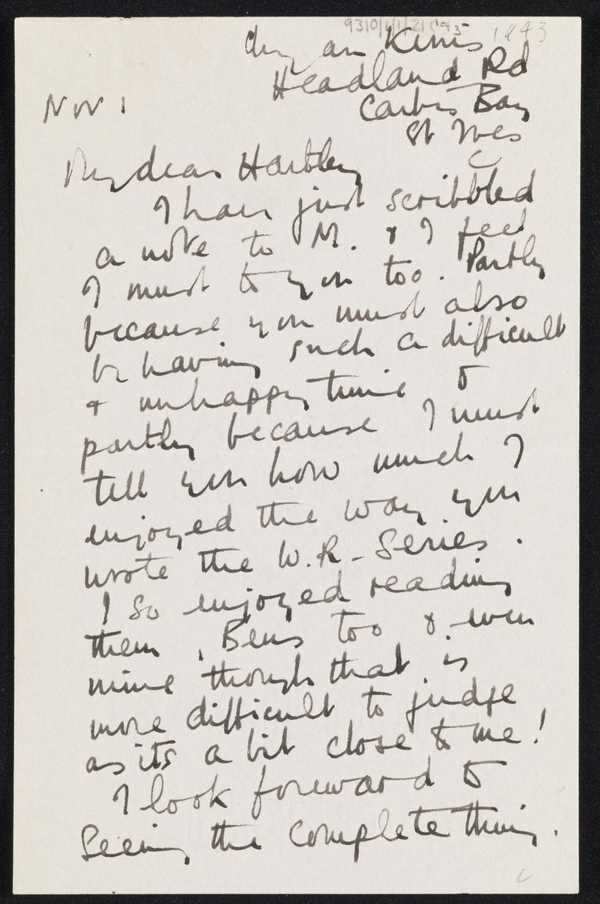 Chy an Kerris
Headland Rd
Carbis Bay
St Ives
C
Nov 1
My dear Hartley
I have just scribbled
a note to M. & I feel
I must to you too. Partly
because you must also
be having such a difficult
& unhappy time &
partly because I must
tell you how much I
enjoyed the way you
wrote the W.R-Series.
I so enjoyed reading
them, Bens too & even
mine though that is
more difficult to judge
as its a bit close to me!
I look foreward to
Seeing the complete thing.